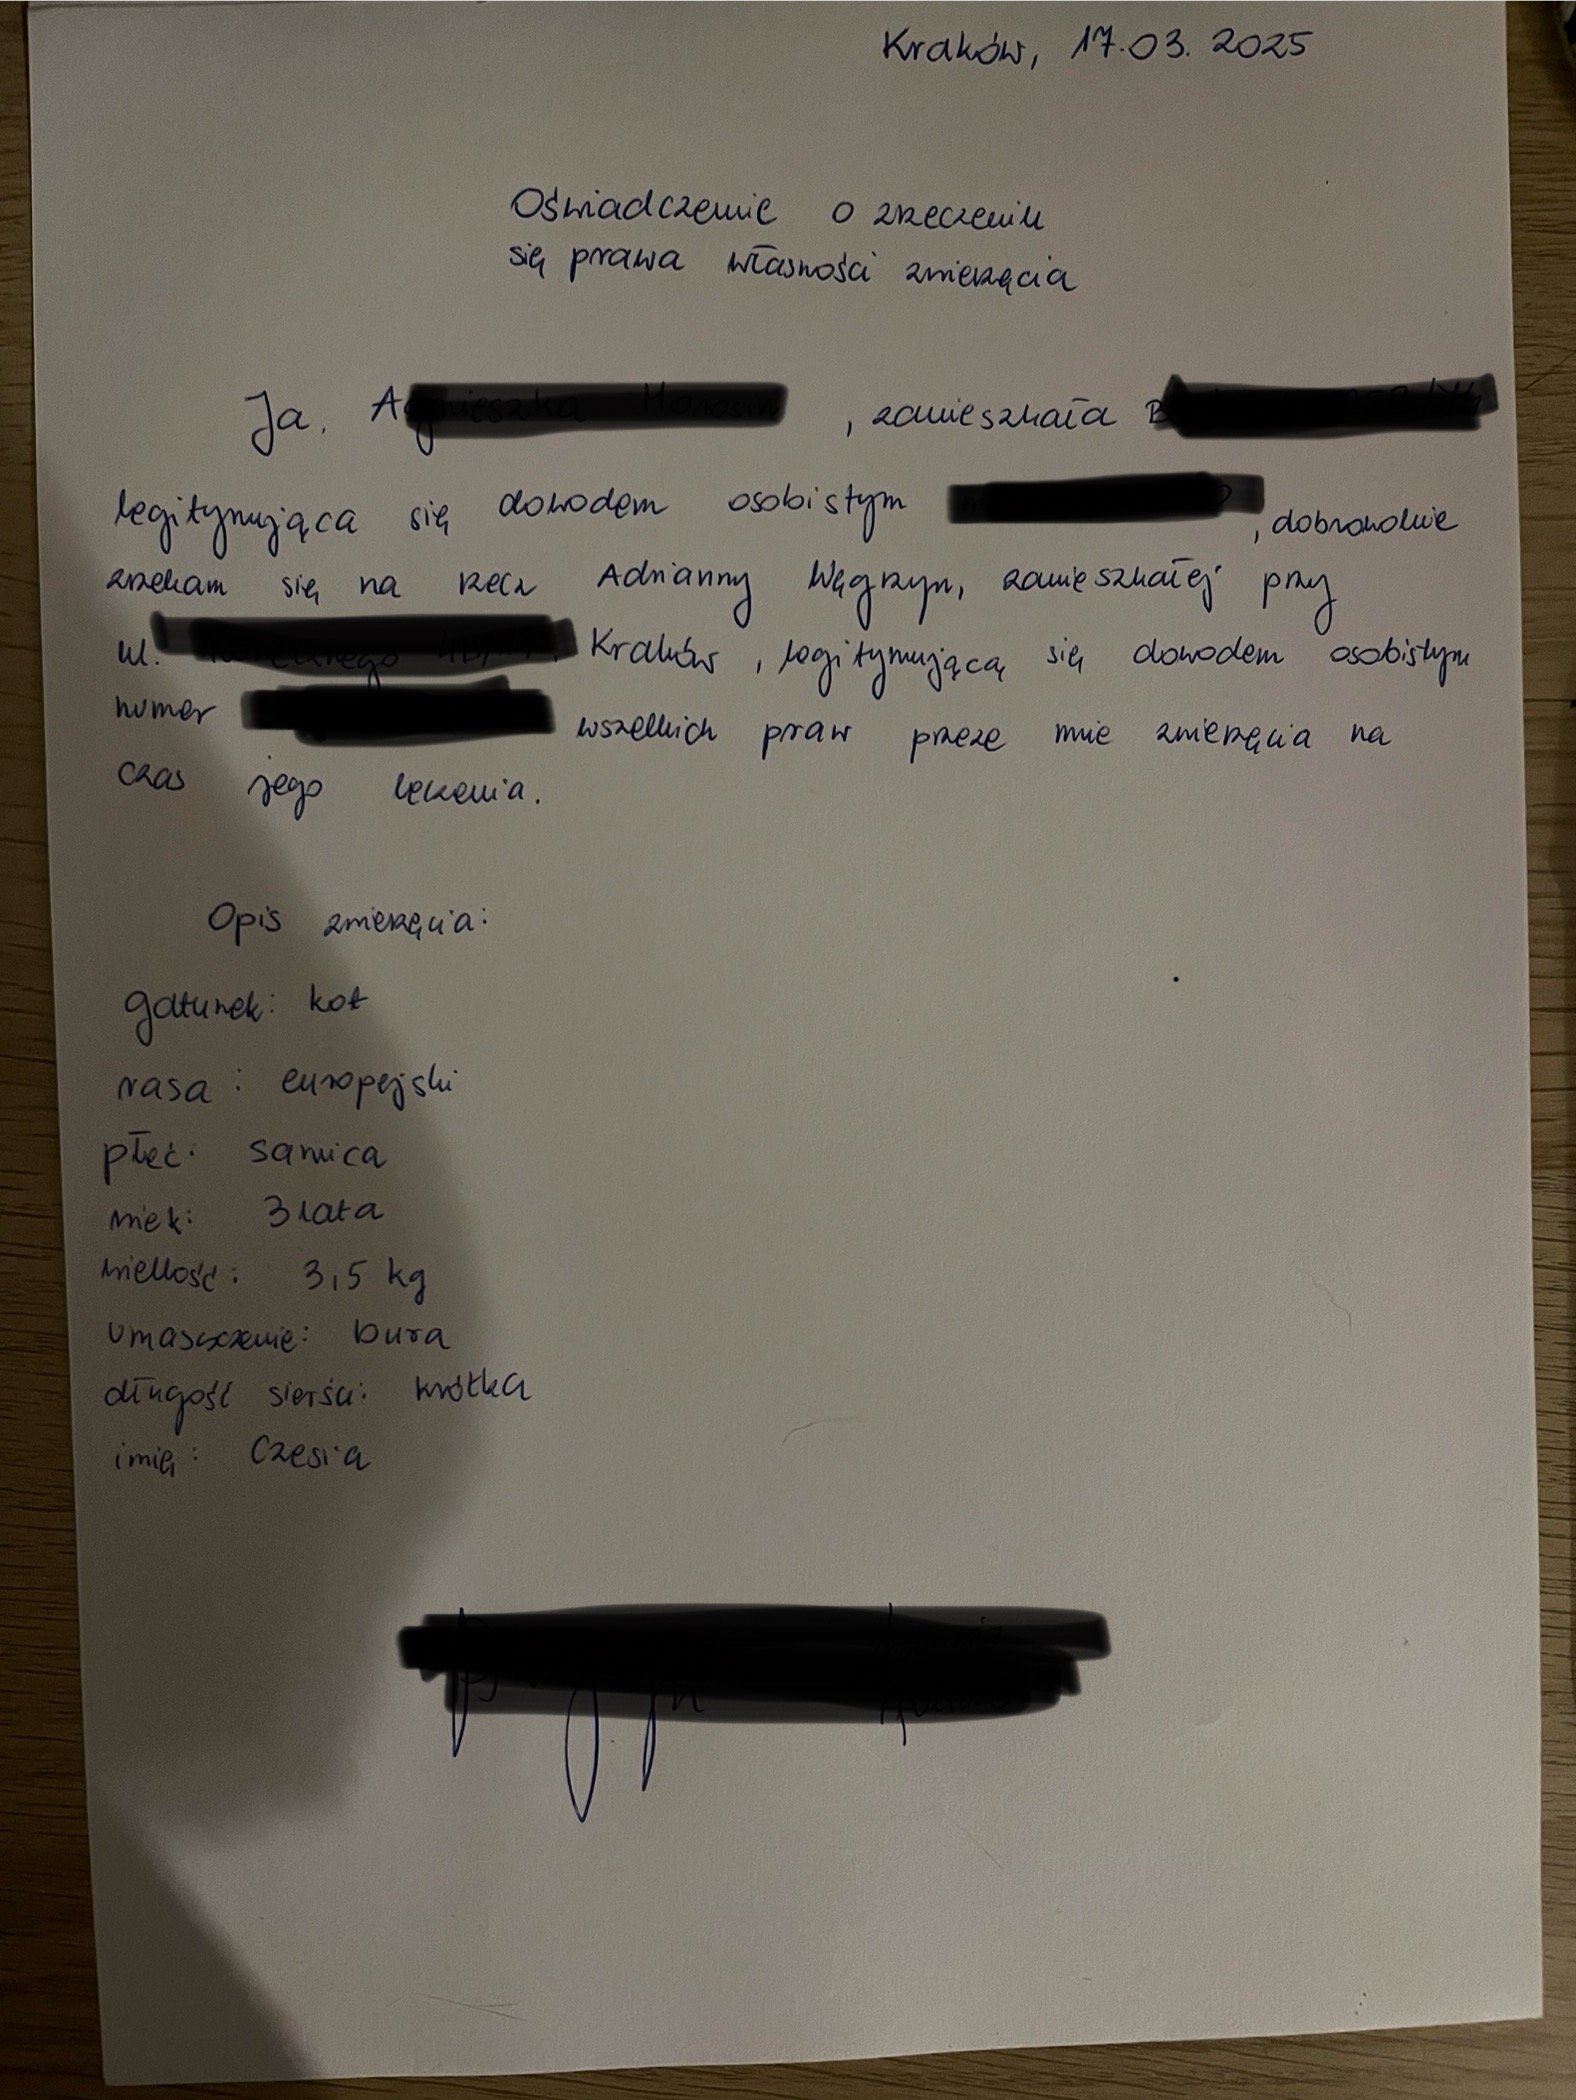 Kraków, 17.03.2025
Oświadczenie o zrzeczeniu
się prawa własności zwierzęcia
Ja, , zamieszkała
legitymująca się dowodem osobistym , dobrowolnie
zrzekam się na rzecz Adrianny Węgrzyn, zamieszkałej przy
ul. Kraków, legitymującą się dowodem osobistym
numer wszelkich praw przeze mnie zwierzęcia na
czas jego leczenia.
Opis zwierzęcia:
gatunek: kot
rasa: europejski
płeć: samica
wiek: 3 lata
wielkość: 3,5 kg
umaszczenie: bura
długość sierści: krótka
imię: Czesia